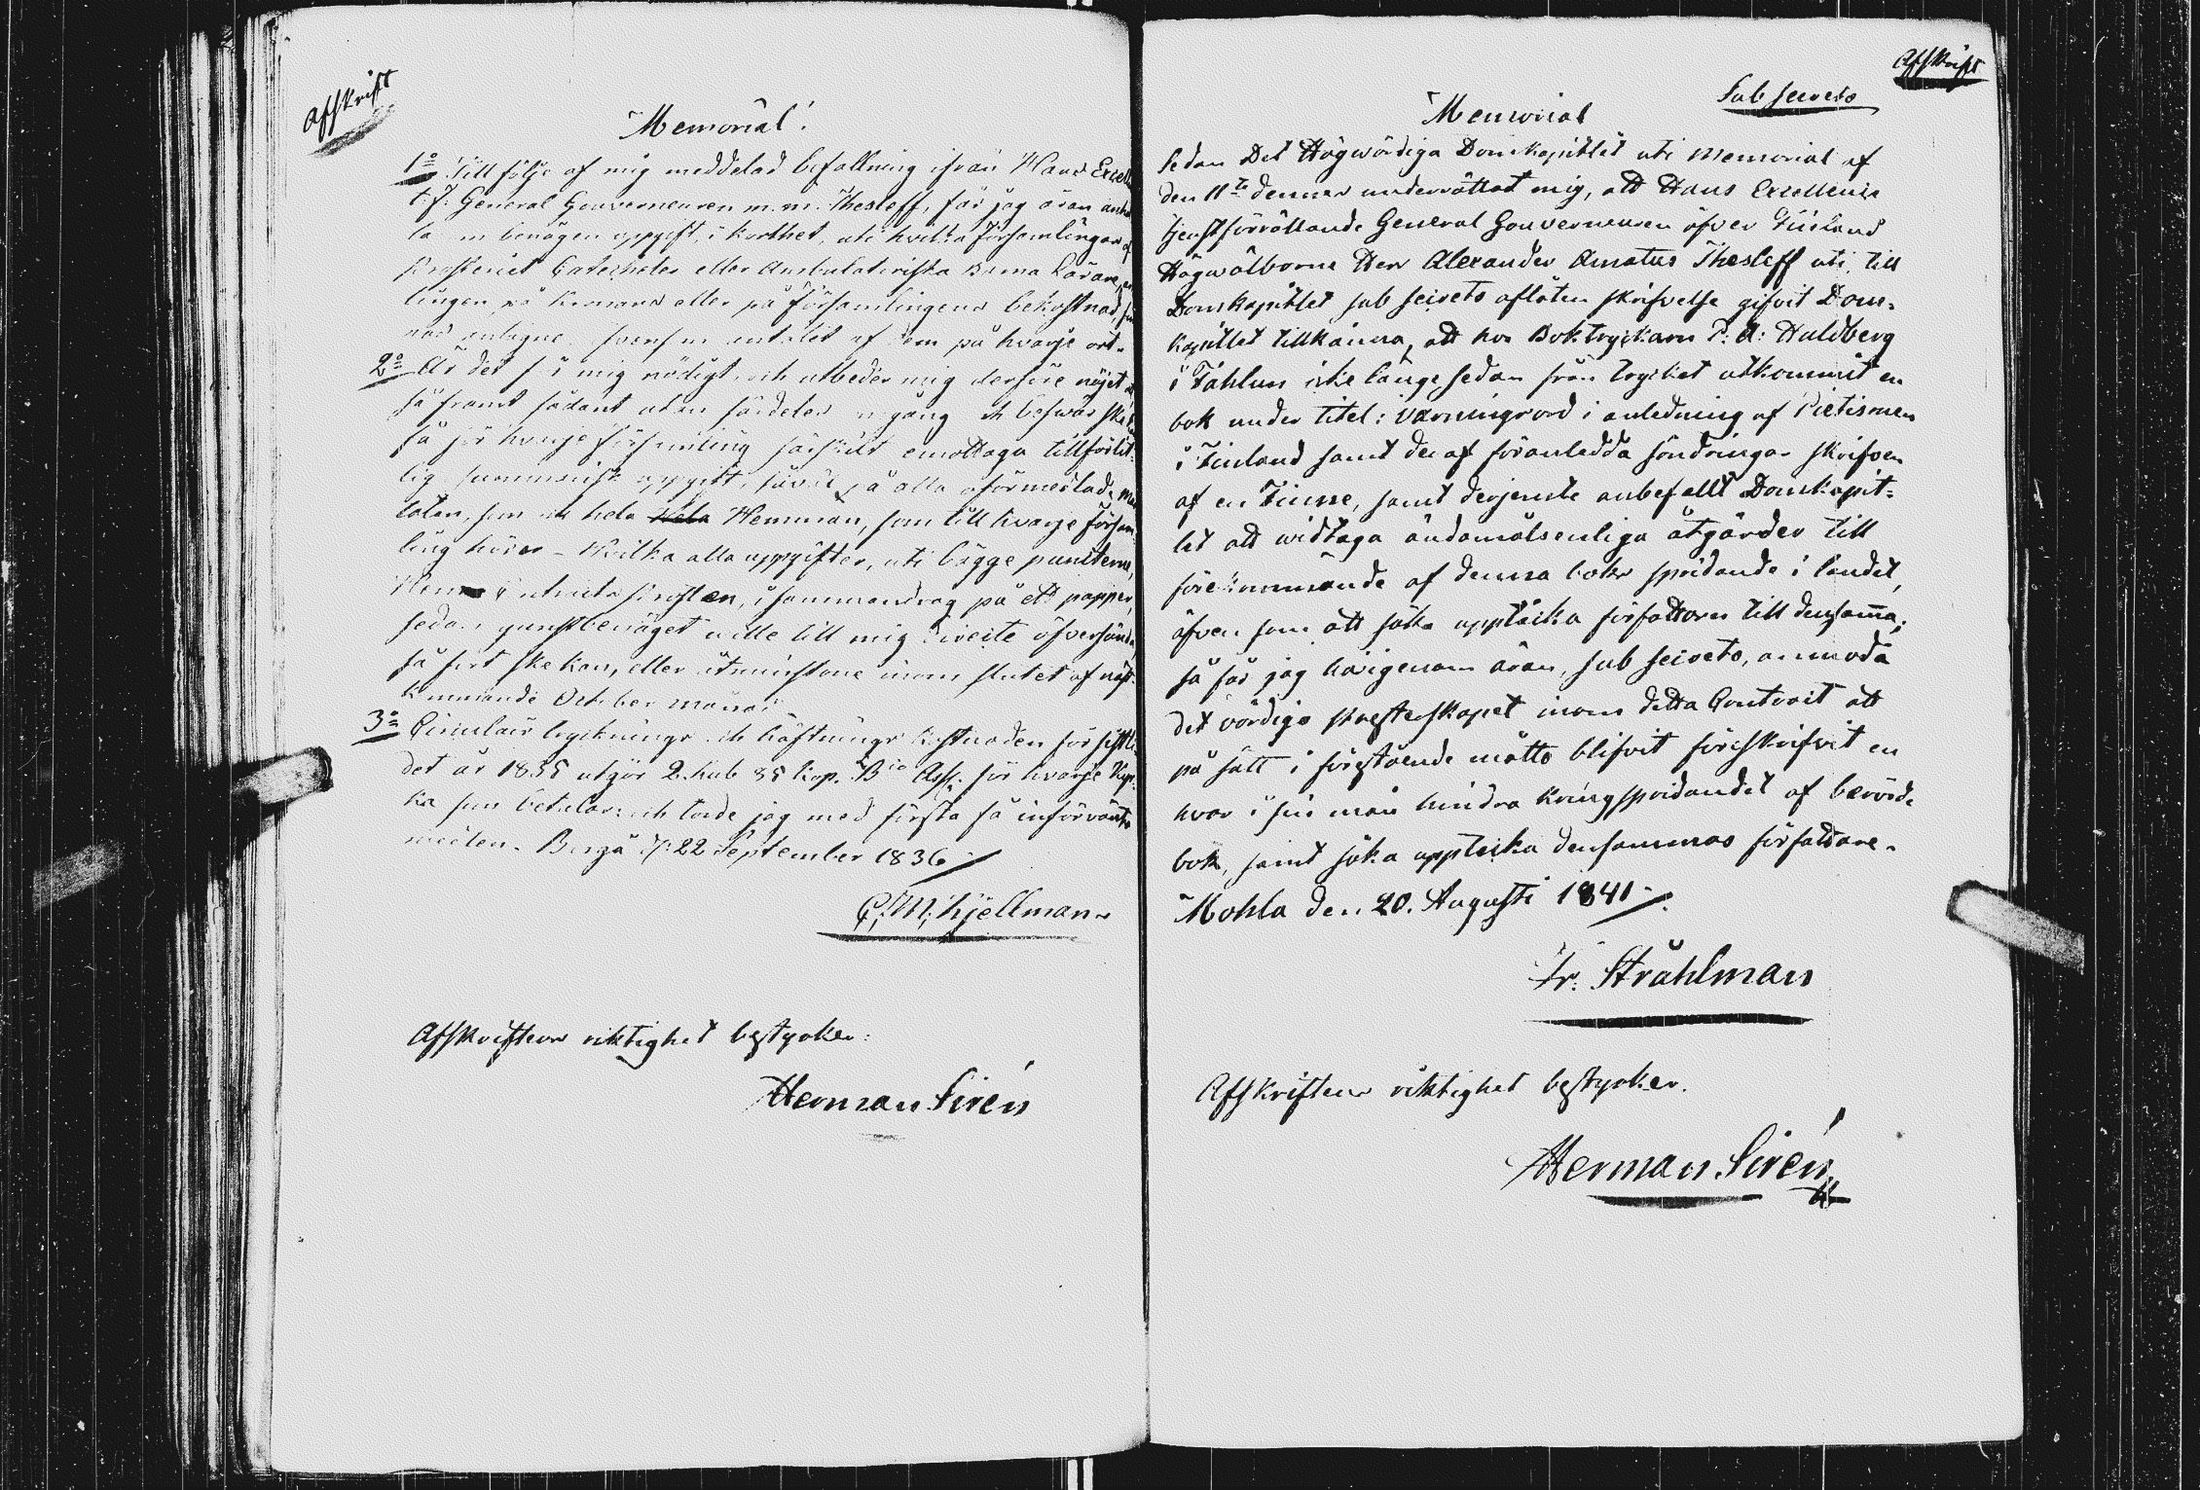 Afskrift
Memorial.
1o Till följe af mig meddelad befallning ifrån Hans Excell
t. f. General Gouverneuren m. m. Thesleff, får jag äran anhå
la om benägen uppgift, i korthet, uti hvilka Församlingar af
Prosteriet Catecheter eller Ambulatoriska Barna Lärare, an
tingen på Kronans eller på Församlingens bekostnad,
antalet af dem på hvarje ort.
2o Är det för mig nödigt, och utbeder mig derföre nöjet
så framt sådant utan särdeles omgång och besvär ske
få för hvarje Församling särskilt emottaga tillförlit-
lig summarisk uppgift, såväl på alla oförmedlade man
talen, som ock hela Hemman, som till hvarje Försam
ling höra – Hvilka alla uppgifter, uti bägge puncterne,
Herr Contracts Prosten, i sammandrag på ett papper,
sedan gunstbenäget ville till mig directe öfversända,
så fort ske kan, eller åtminstone inom slutet af näst-
kommande October månad.
3o Circulair trycknings och häftnings kostnaden för sistl.
det år 1835 utgör 2. Rub 85 Kop. Bco Ass. för hvarje Kyr-
ka som betalar, och torde jag med första få införvänta
medlen. Borgå d. 22 September 1836
C. M: Kjellman
Afskriftens riktighet bestyrker:
Herman Sirén
Afskrift
Sub secreto
Memorial
Sedan Det Högwördiga Domkapitlet uti Memorial af
den 11te dennes underrättat mig, att Hans Excellence
tjenstförrättande General Gouverneuren öfver Finland
Högwälborne Herr Alexander Amatus Thesleff uti, till
Domkapitlet sub secreto aflåten skrifvelse gifvit Dom-
kapitlet tillkänna, att hos Boktryckaren P: A: Huldberg
i Fahlun icke länge sedan från trycket utkommit en
bok under titel: Varningsord i anledning af Pietismen
i Finland samt deraf föranledda söndringar skrifven
af en Finne, samt derjemte anbefallt Domkapit-
let att widtaga ändamålsenliga åtgärder till
förekommande af denna boks spridande i landet,
äfven som att söka upptäcka författaren till densama;
så får jag härigenom äran, sub secreto, anmoda
det vördiga presterskapet inom detta Contract att
på sätt i förestående måtto blifvit föreskrifvit en
hvar i sin mån hindra kringspridandet af berörde
bok, samt söka upptäcka densammas författare.
Mohla den 20. Augusti 1841.
Fr. Stråhlman
Afskriftens riktighet bestyrker.
Herman Sirén